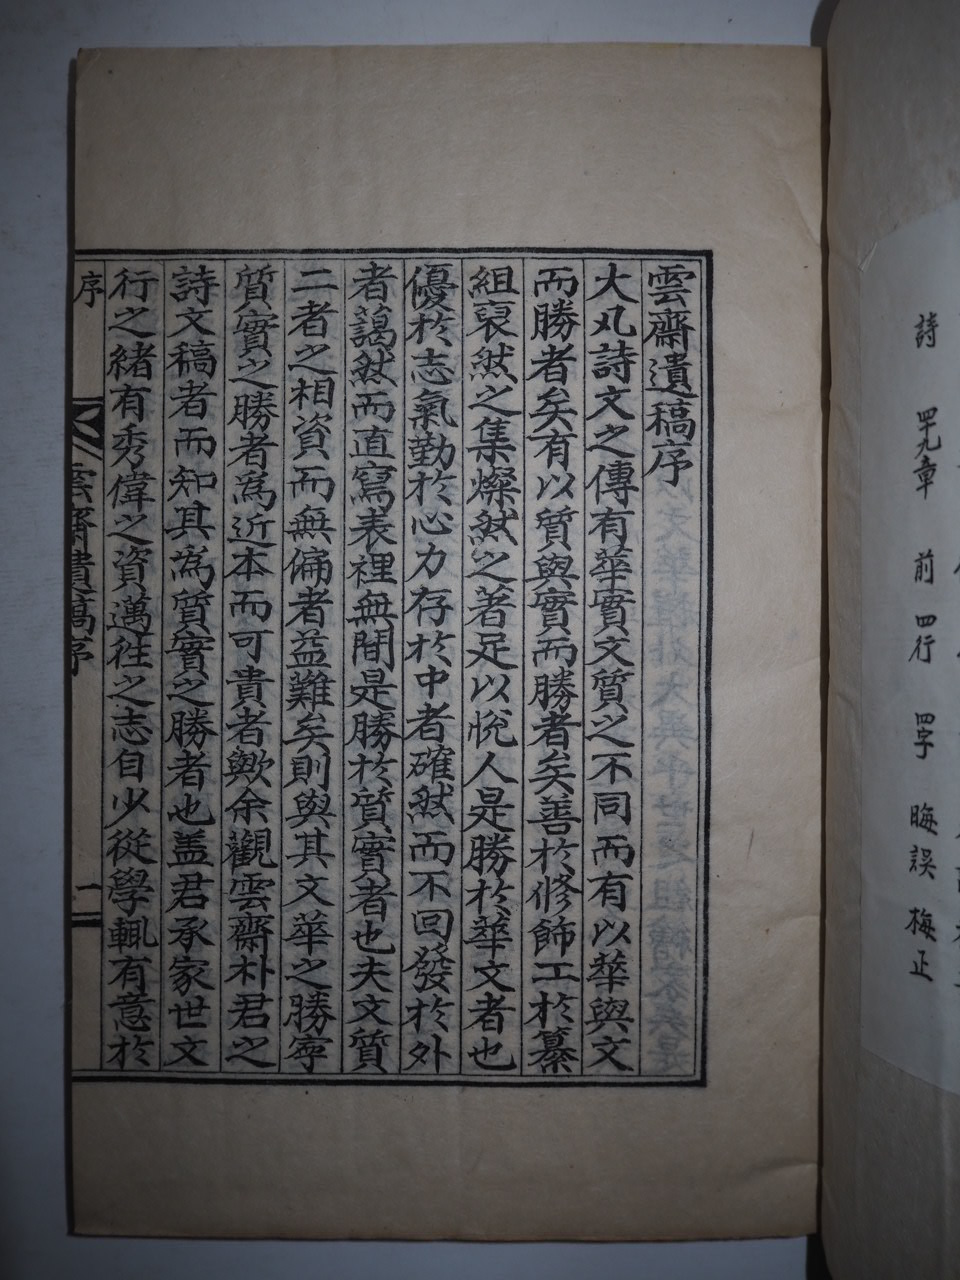 詩 四九章 前 四行 四字 晦誤 梅正
雲齋遺稿序
大凡詩文之傳有華實文質之不同而有以華與文
而勝者矣有以質與實而勝者矣善於修飾工於纂
組裒然之集燦然之著足以悅人是勝於華文者也
優於志氣勤於心力存於中者確然而不回發於外
者藹然而直寫表裡無間是勝於質實者也夫文質
二者之相資而無偏者益難矣則與其文華之勝寧
質實之勝者為近本而可貴者歟余觀雲齋朴君之
詩文稿者而知其為質實之勝者也盖君承家世文
行之緒有秀偉之資邁往之志自少從學輒有意於
序
雲齋遺稿序
一